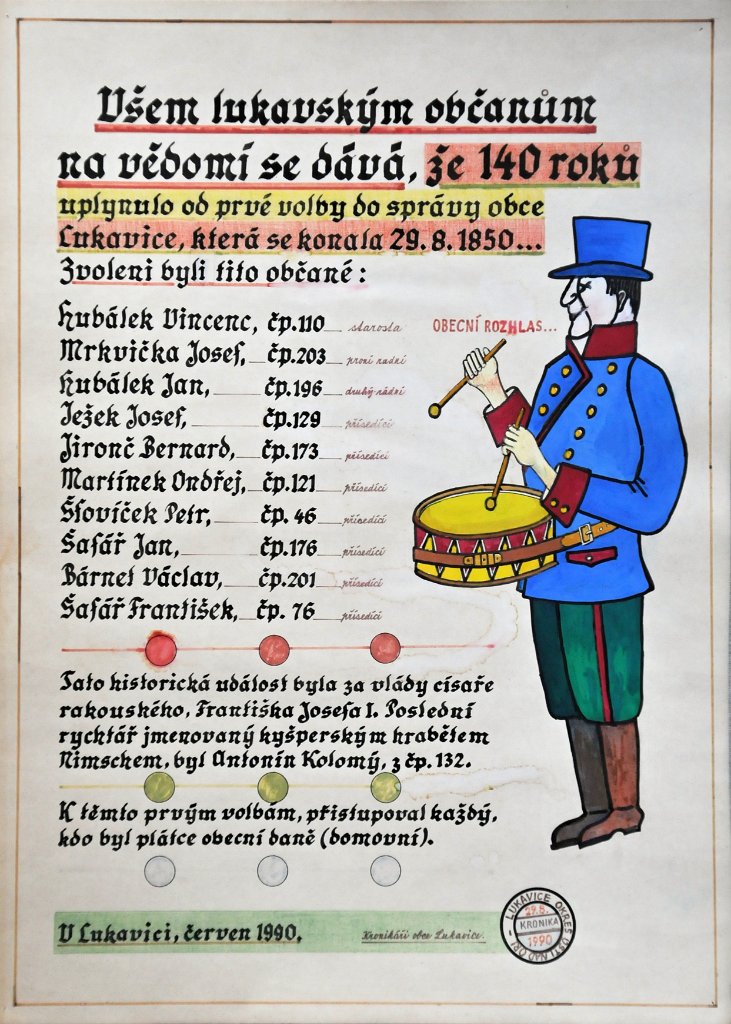 Všem lukavským občanům
na vědomí se dává, že 140 roků
uplynulo od prvé volby do správy obce
Lukavice, která se konala 29. 8. 1850...
Zvoleni byli tito občané :
Hubálek Vincenc, čp. 110 starosta
OBECNÍ ROZHLAS...
Mrkvička Josef, čp. 203 první radní
Hubálek Jan, čp. 196 druhý rádní
Ježek Josef, čp. 129 přísedící
Jironč Bernard, čp. 173 přísedící
Martínek Ondřej, čp. 121 přísedící
Šťovíček Petr, čp. 46 přísedící
Šafář Jan, čp. 176 přísedící
Bárnet Václav, čp. 201 přísedící
Šafář František, čp. 76 přísedící
Tato historická událost byla za vlády císaře
rakouského, Františka Josefa I. Poslední
rychtář jmenovaný kyšperským hrabětem
Nimschem, byl Antonín Kolomý, z čp. 132.
K těmto prvým volbám, přistupoval každý,
kdo byl plátce obecní daně (domovní).
V Lukavici, červen 1990.
Kronikáři obce Lukavice.
LUKAVICE OKRES ÚSTÍ NAD ORL.
29.8.
KRONIKA
1990